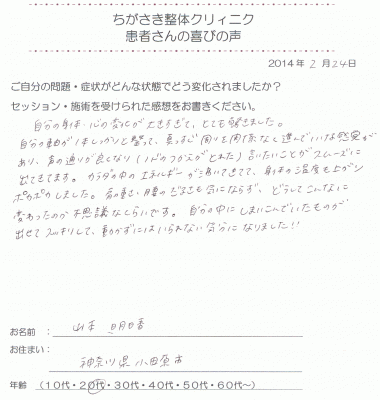 ちがさき整体クリィニク
患者さんの喜びの声
2014年 2月 24日
ご自分の問題・症状がどんな状態でどう変化されましたか?
セッション・施術を受けられた感想をお書きください。
自分の身体・心の変化が大きすぎて、とても驚きました。
自分の軸が1本しっかりと整って、真っすぐ周り関係なく進んでいける感覚が
あり、声の通りが良くなり(ノドのつかえがとれた)言いたいことがスムーズに
出てきてます。カラダの中のエネルギーが湧いてきてて、身体の温度も上がり
ポカポカしました。肩の重さ・腰のだるさも気にならず、どうしてこんなに
変わったのか不思議なくらいです。自分の中にしまいこんでいたものが
出せてスッキリして、動かずにはいられない気分になりました!!
お名前 : 山本 明日香
お住まい : 神奈川県小田原市
年齢 (10代・20代・30代・40代・50代・60代~)